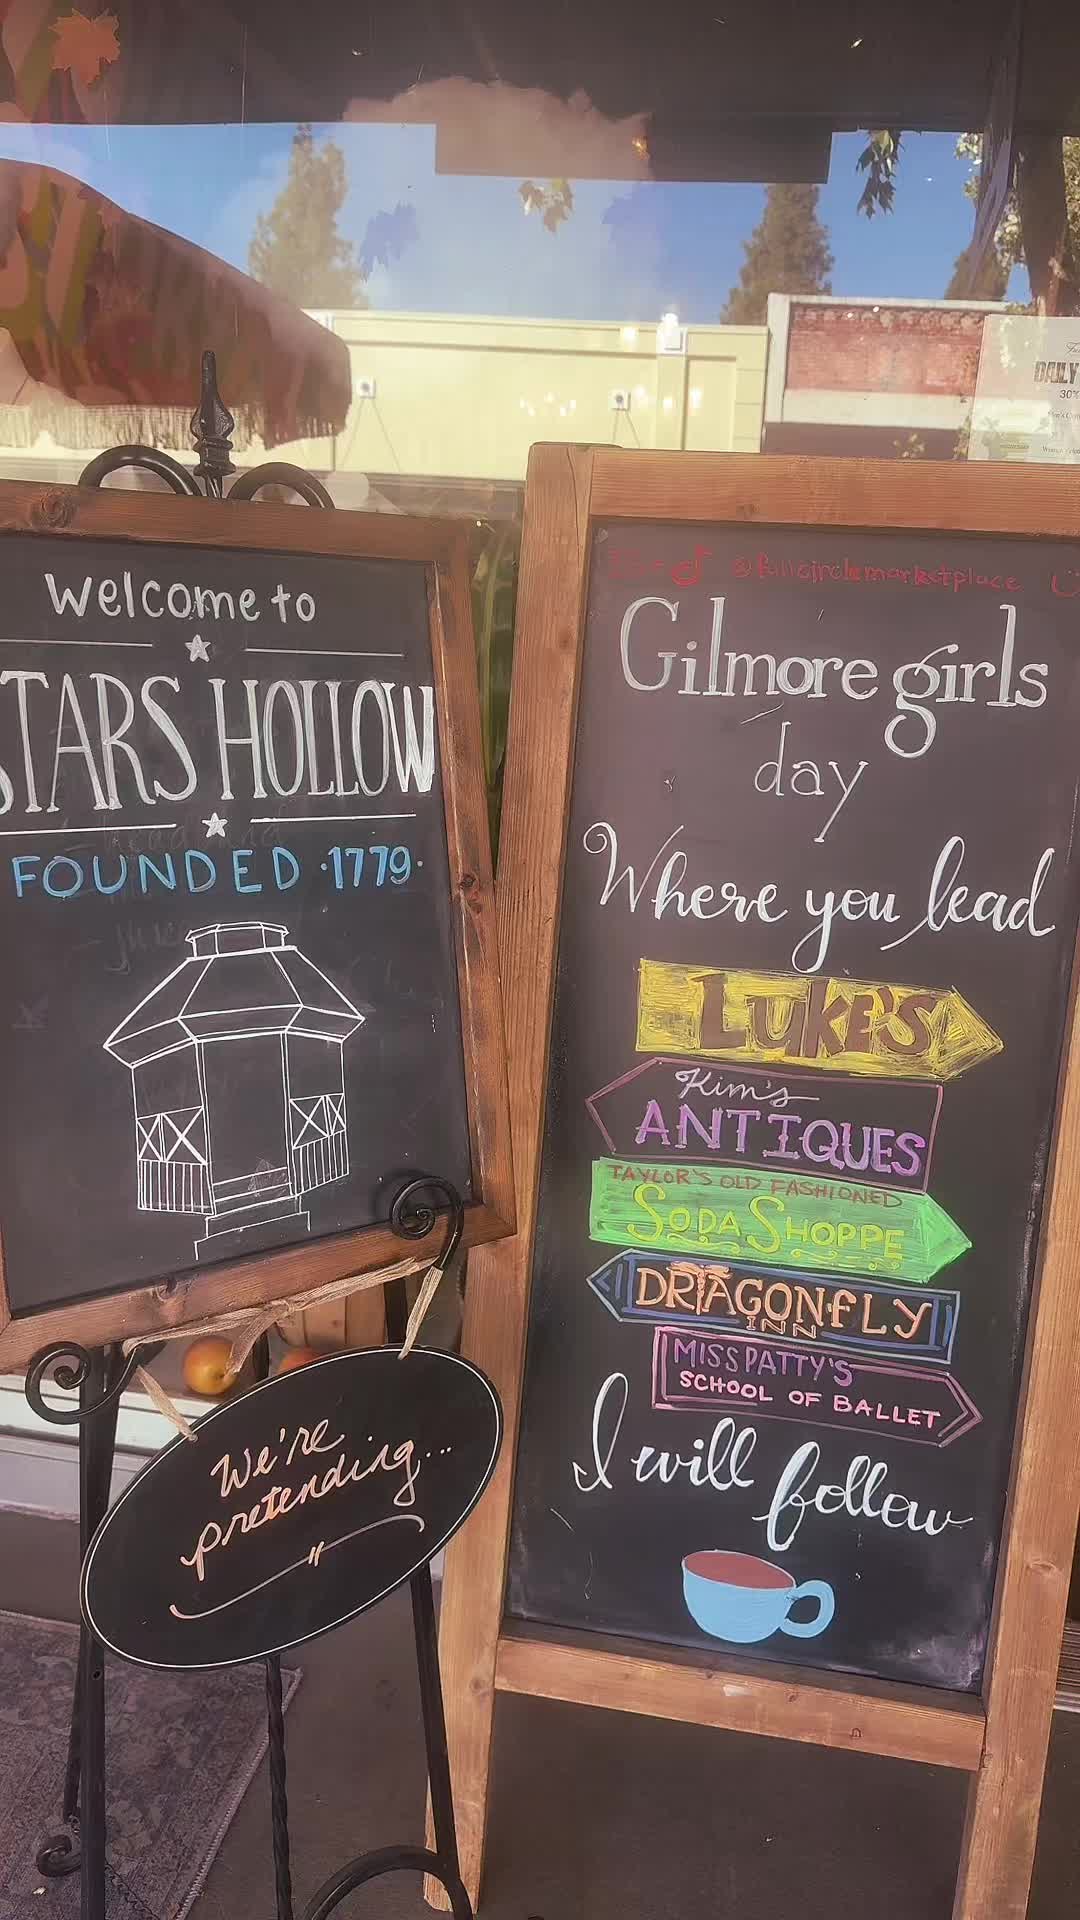 Welcome to
STARS HOLLOW
FOUNDED ·1779·
We're
pretending...
@fullcirclemarketplace
Gilmore girls
day
Where you lead
LUKE'S
Kim's
ANTIQUES
TAYLOR'S OLD FASHIONED
SODA SHOPPE
DRAGONFLY
INN
MISS PATTY'S
SCHOOL OF BALLET
I will follow
DAILY
30%